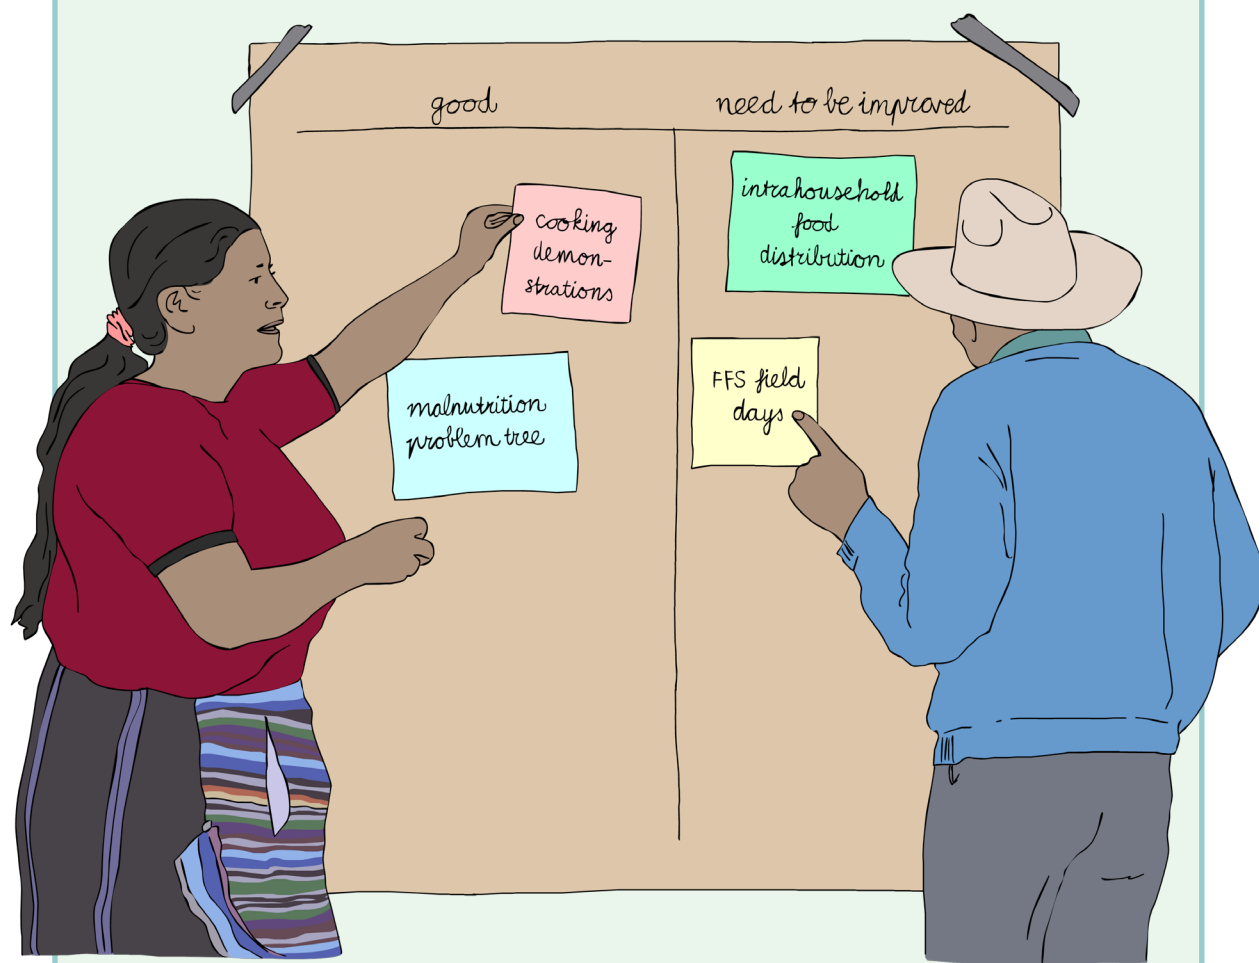 good
need to be improved
cooking
demon-
strations
malnutrition
problem tree
intrahousehold
food
distribution
FFS field
days